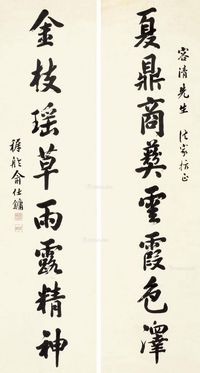 容清先生 法家指正
夏鼎商彝雲霞色澤
金枝瑶草雨露精神
稚舲俞仕鏞